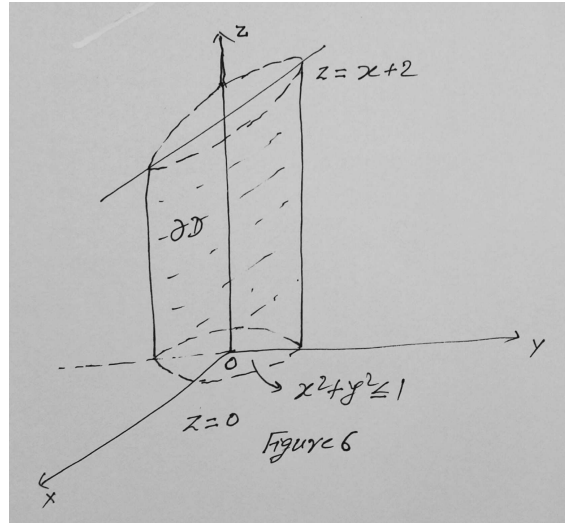 z
z = x+2
∂D
y
0
x²+y²≤1
z=0
Figure 6
x